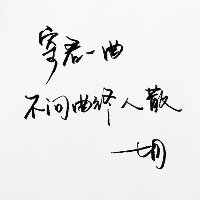 寄君一曲
不问曲终人散
七月